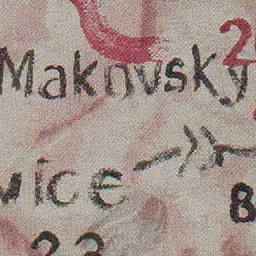 Maknvsky 2
vice
B
23